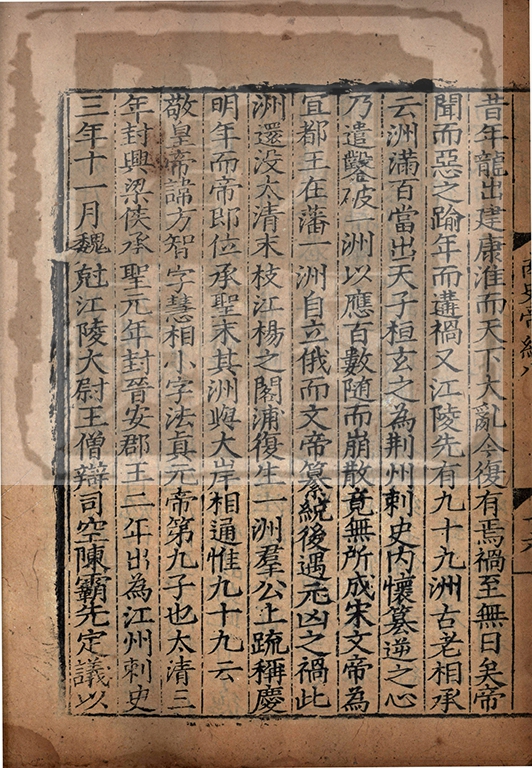 昔年龍出建康淮而天下大亂今復有焉禍至無日矣帝
聞而惡之踰年而遘禍又江陵先有九十九洲古老相承
云洲滿百當出天子桓玄之為荆州刺史内懷簒逆之心
乃遣鑿破一洲以應百數随而崩散竟無所成宋文帝為
宜都王在藩一洲自立俄而文帝纂統後遇元凶之禍此
洲還没太清末枝江楊之閣浦復生一洲羣公上疏稱慶
明年而帝即位承聖末其洲與大岸相通惟九十九云
敬皇帝諱方智字慧相小字法真元帝第九子也太清三
年封興梁侯承聖元年封晉安郡王二年出為江州刺史
三年十一月魏尅江陵大尉王僧辯司空陳霸先定議以